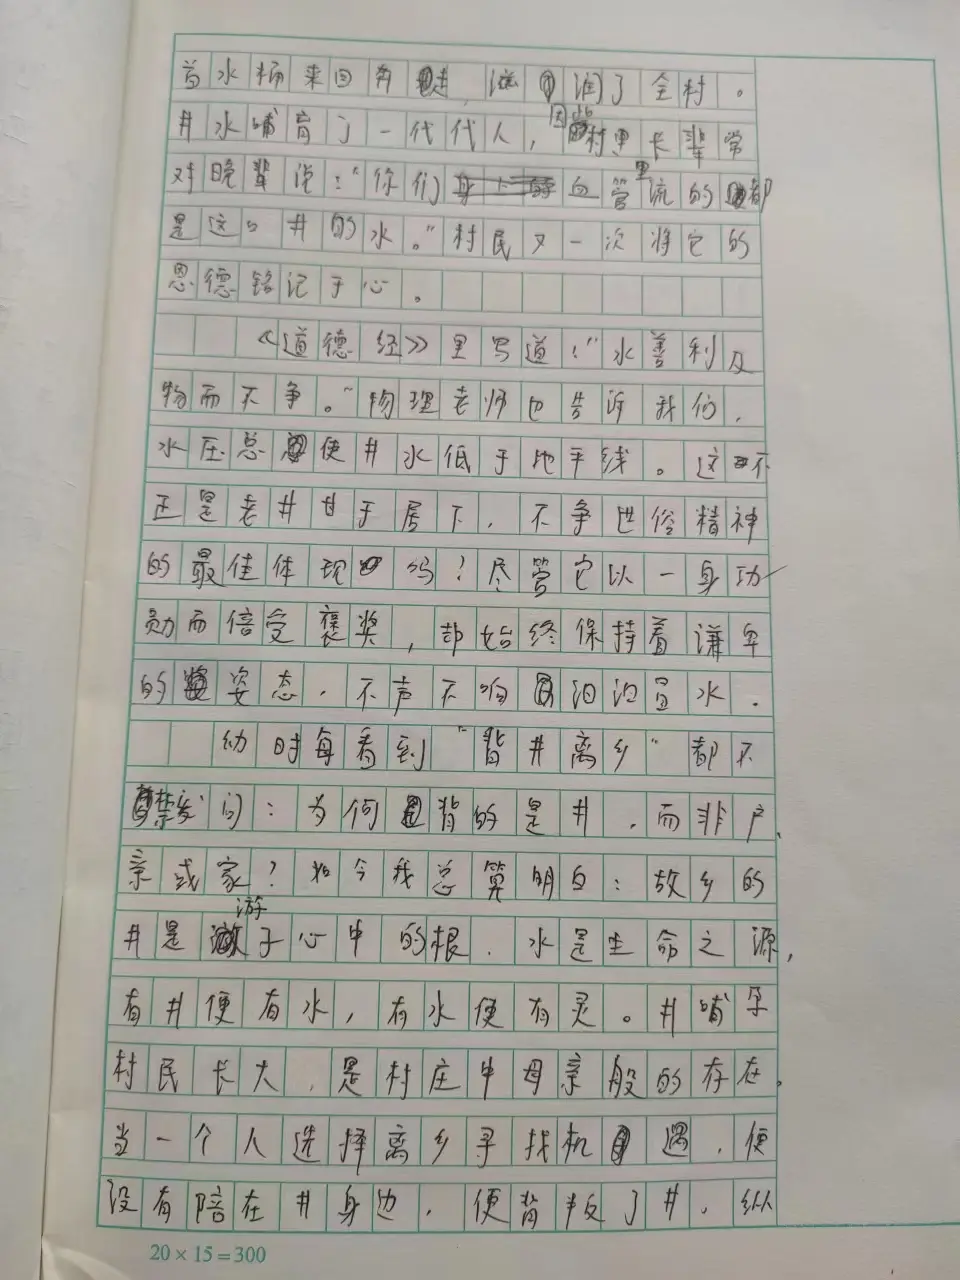 着水桶来回奔走,滋润了全村。
井水哺育了一代代人,因此村里长辈常
对晚辈说:“你们血管里流的都
是这口井的水。”村民又一次将它的
恩德铭记于心。
《道德经》里写道:“水善利及
物而不争。”物理老师也告诉我们,
水压总使井水低于地平线。这不
正是老井甘于居下,不争世俗精神
的最佳体现吗?尽管它以一身功
勋而倍受褒奖,却始终保持着谦卑
的姿态,不声不响汩汩冒水.
幼时每看到“背井离乡”都不
禁发问:为何背的是井,而非户、
亲或家?如今我总算明白:故乡的
井是游子心中的根.水是生命之源,
有井便有水,有水便有灵。井哺孕
村民长大,是村庄中母亲般的存在,
当一个人选择离乡寻找机遇,便
没有陪在井身边,便背叛了井。纵
20×15=300